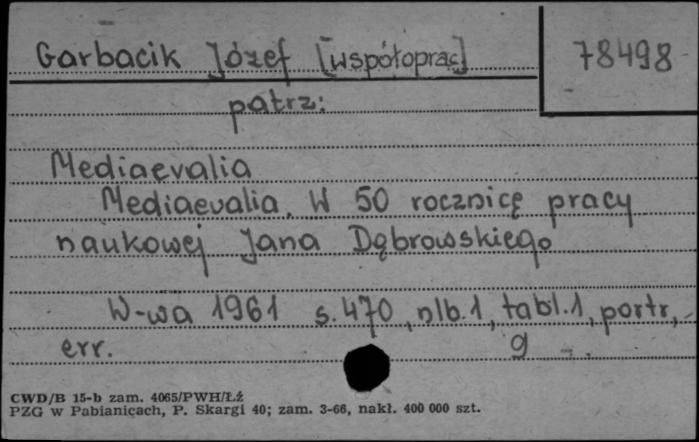 Garbacik Józef [współoprac]
78498
patrz:
Mediaevalia
Mediaevalia. W 50 rocznicę pracy
naukowej Jana Dąbrowskiego
W-wa 1961 s. 470, nlb. 1, tabl. 1, portr,
err. 9 -.
CWD/B 15-b zam. 4065/PWH/Łź
PZG w Pabianicach, P. Skargi 40; zam. 3-66, nakł. 400 000 szt.